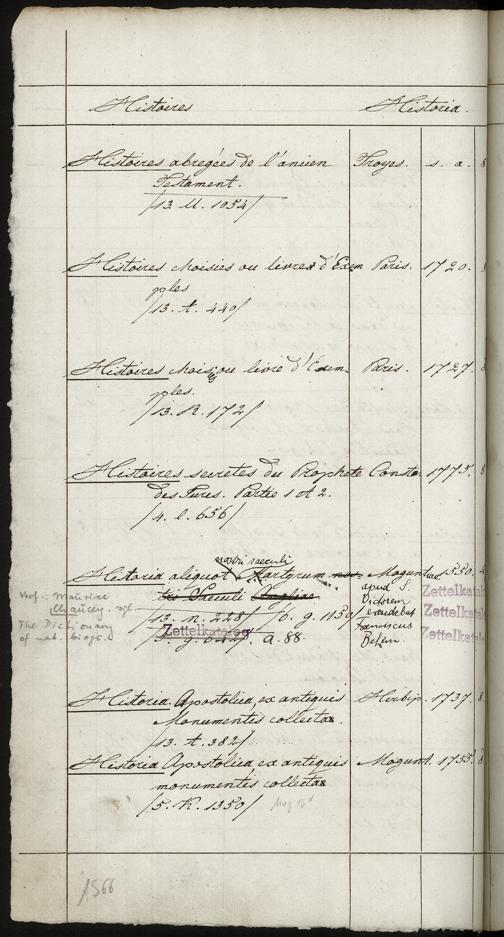 Histoires Historia.
Histoires abregées de l'ancien Troyes. s. a. 8
Testament.
/13. U. 1054/
Histoires choisies ou livres d'Exem Paris. 1720. 8
ples
/13. t. 440/
Histoires chois: ou livre d'Exem Paris. 1727. 8
ples.
/13. R. 172/
Histoires secretes du Prophete Consta. 1775. 8
des Turcs. Partie 1 et 2.
/4. l. 656/
nostri saeculi
Historia aliquot Martyrum Mogunt 1550. 4
Saeculi Angliae
apud S.
Victorem
excudebat
Franciscus
Behem
Verf.: Maurice
Chauncy. vgl.
The Dictionary
of nat. biogr.
/13. n. 228/ /6. g. 1150/
a. 88.
Zettelkatalog
Zettelkatal
Zettelkatal
Zettelkatal
Historia Apostolica, ex antiquis Herbip. 1737. 8
Monumentis collecta.
/13. t. 382/
Historia Apostolica ex antiquis Mogunt. 1755. 8
monumentis collecta
/5. K. 1350/
1566